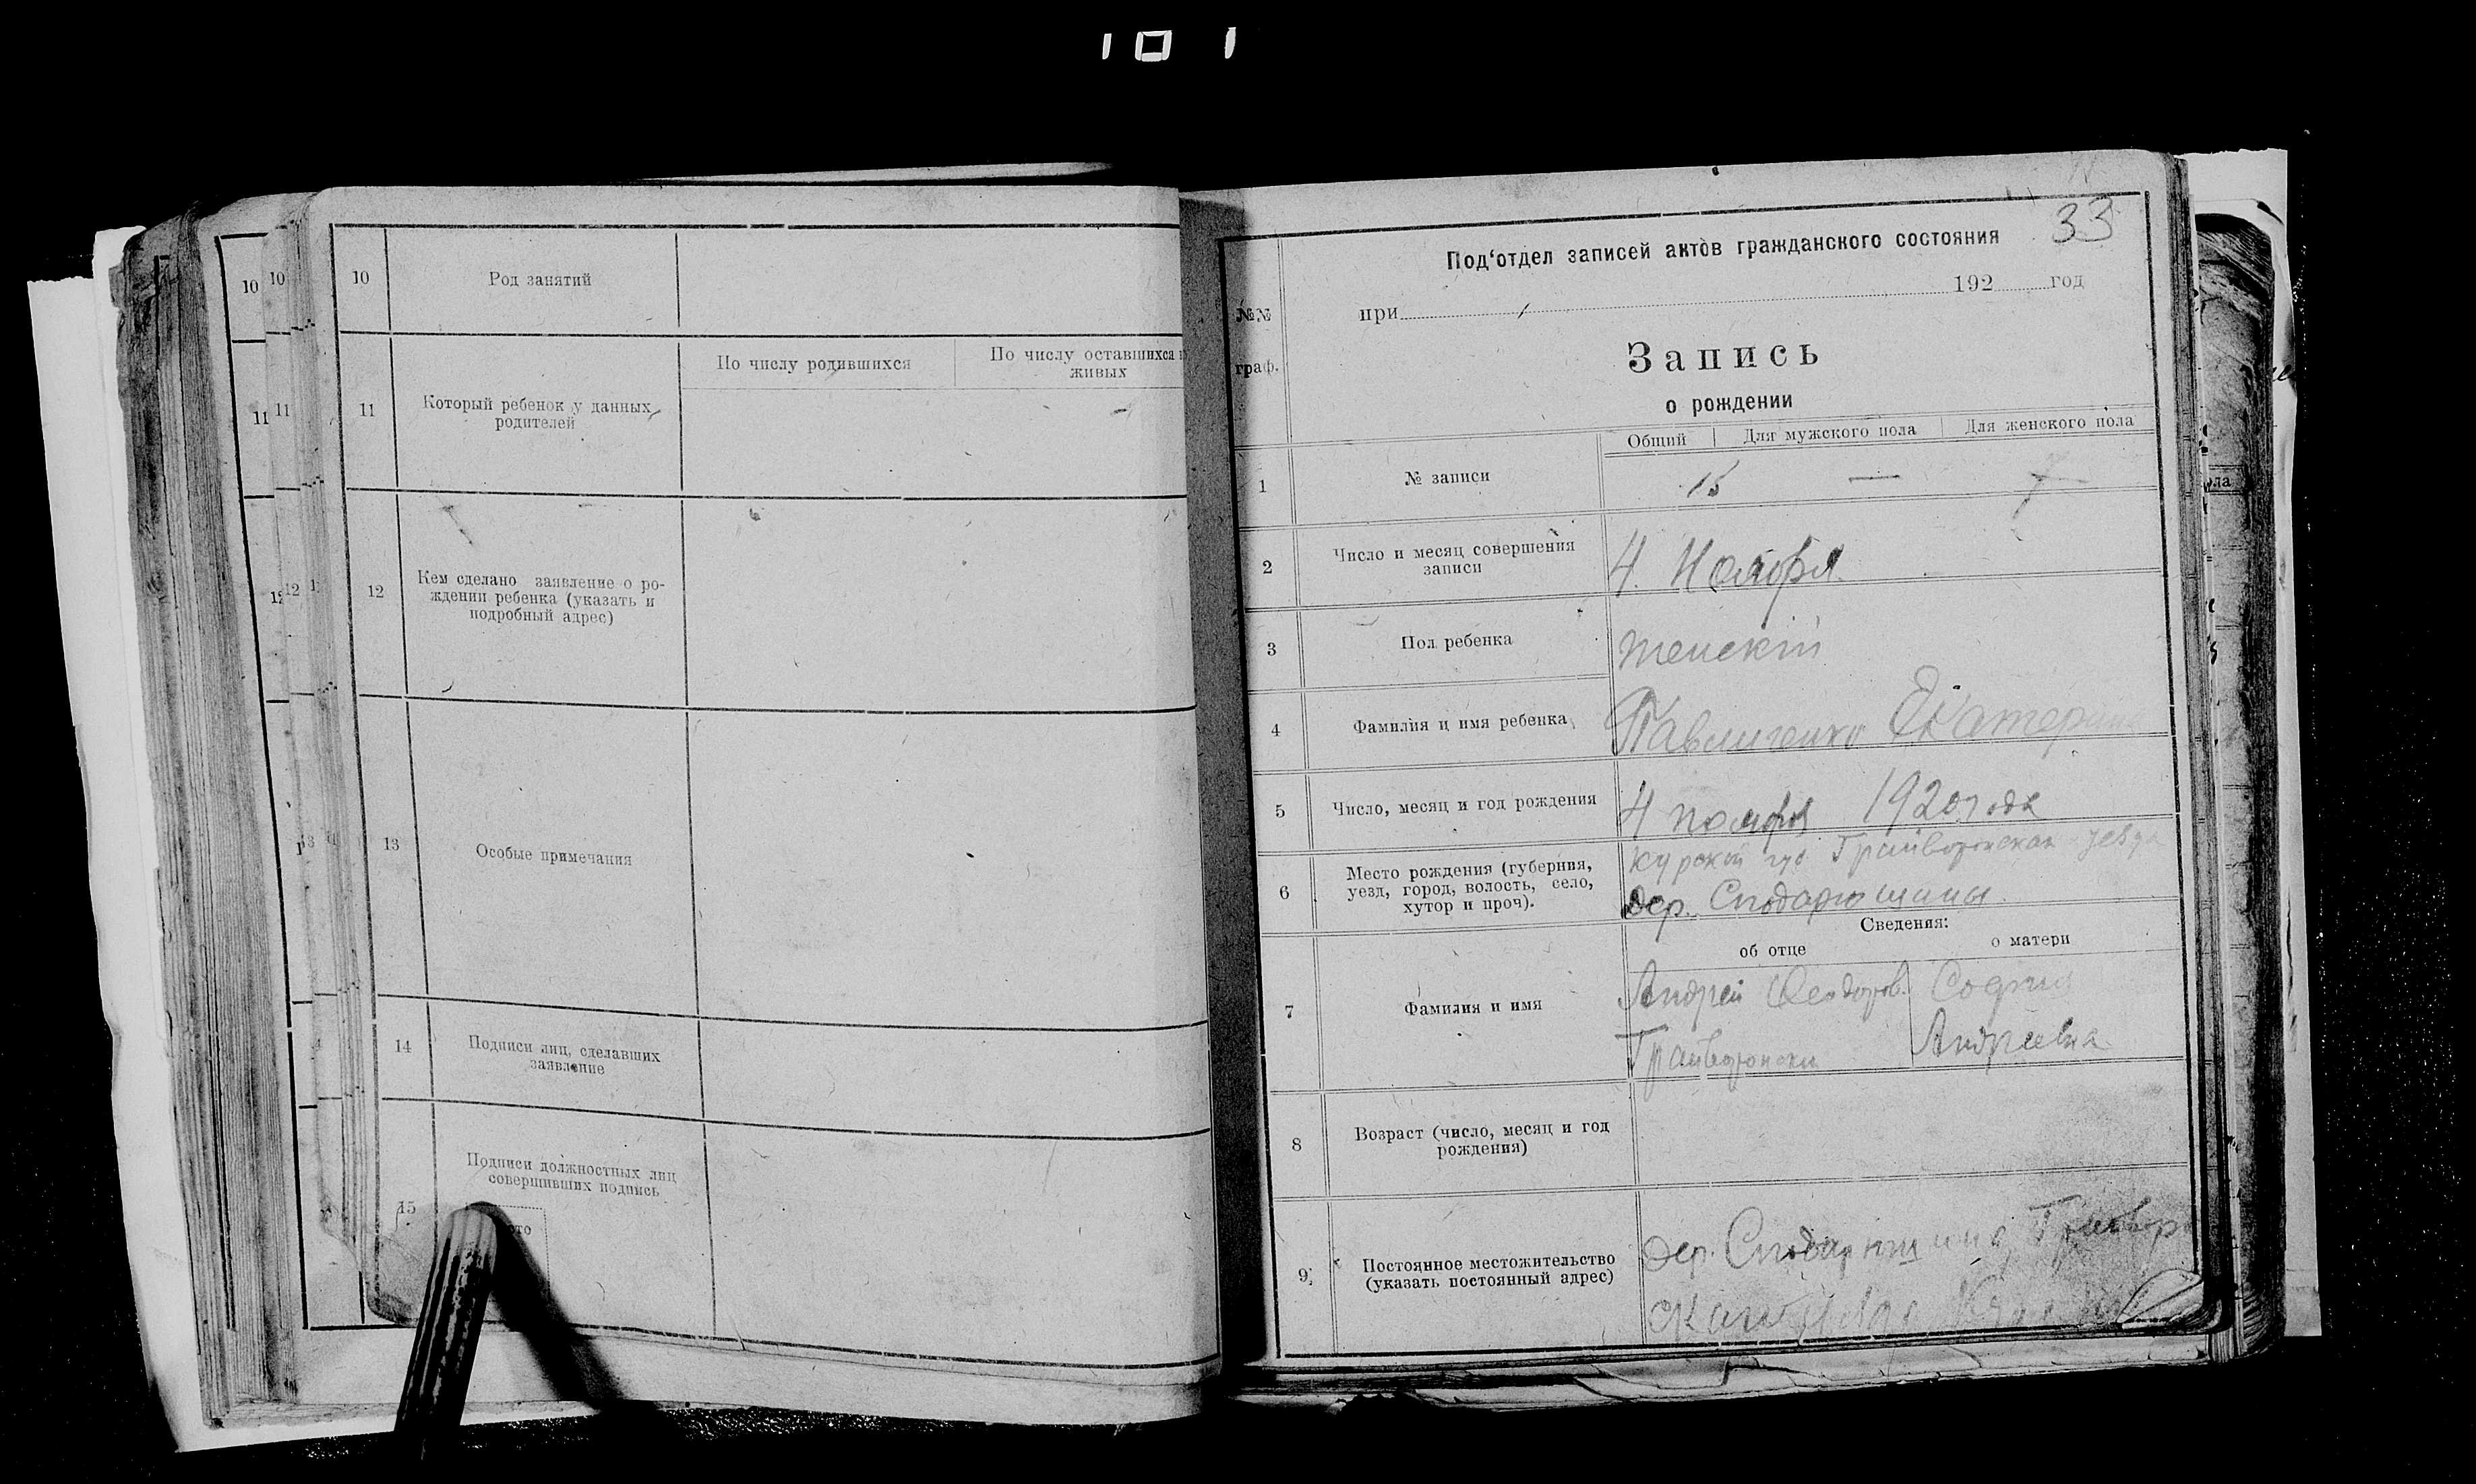 101
10
10
10
Род занятий
11
11
11
Который ребенок у данных
родителей
По числу родившихся
По числу оставшихся
живых
12
12
Кем сделано заявление о ро-
ждении ребенка (указать и
подробный адрес)
13
13
Особые примечания
14
Подписи лиц, сделавших
заявление
15
Подписи должностных лиц
совершивших подпись
33
Под‘отдел записей актов гражданского состояния
при 192 год
№№
граф.
Запись
о рождении
Общий Для мужского пола Для женского пола
1 № записи 15 — 7
2 Число и месяц совершения
записи
4. Ноября
3 Пол ребенка женскій
4 Фамилия и имя ребенка Павличенко Екатерина
5 Число, месяц и год рождения 4 ноября 1920 года
6 Место рождения (губерния,
уезд, город, волость, село,
хутор и проч).
Курской губ. Грайворонская уезда
дер. Сподарюшины
Сведения:
об отце о матери
7 Фамилия и имя
Андрей Феодоров. София
Андреевна
8 Возраст (число, месяц и год
рождения)
9 Постоянное местожительство
(указать постоянный адрес)
дер. Сподарюшина